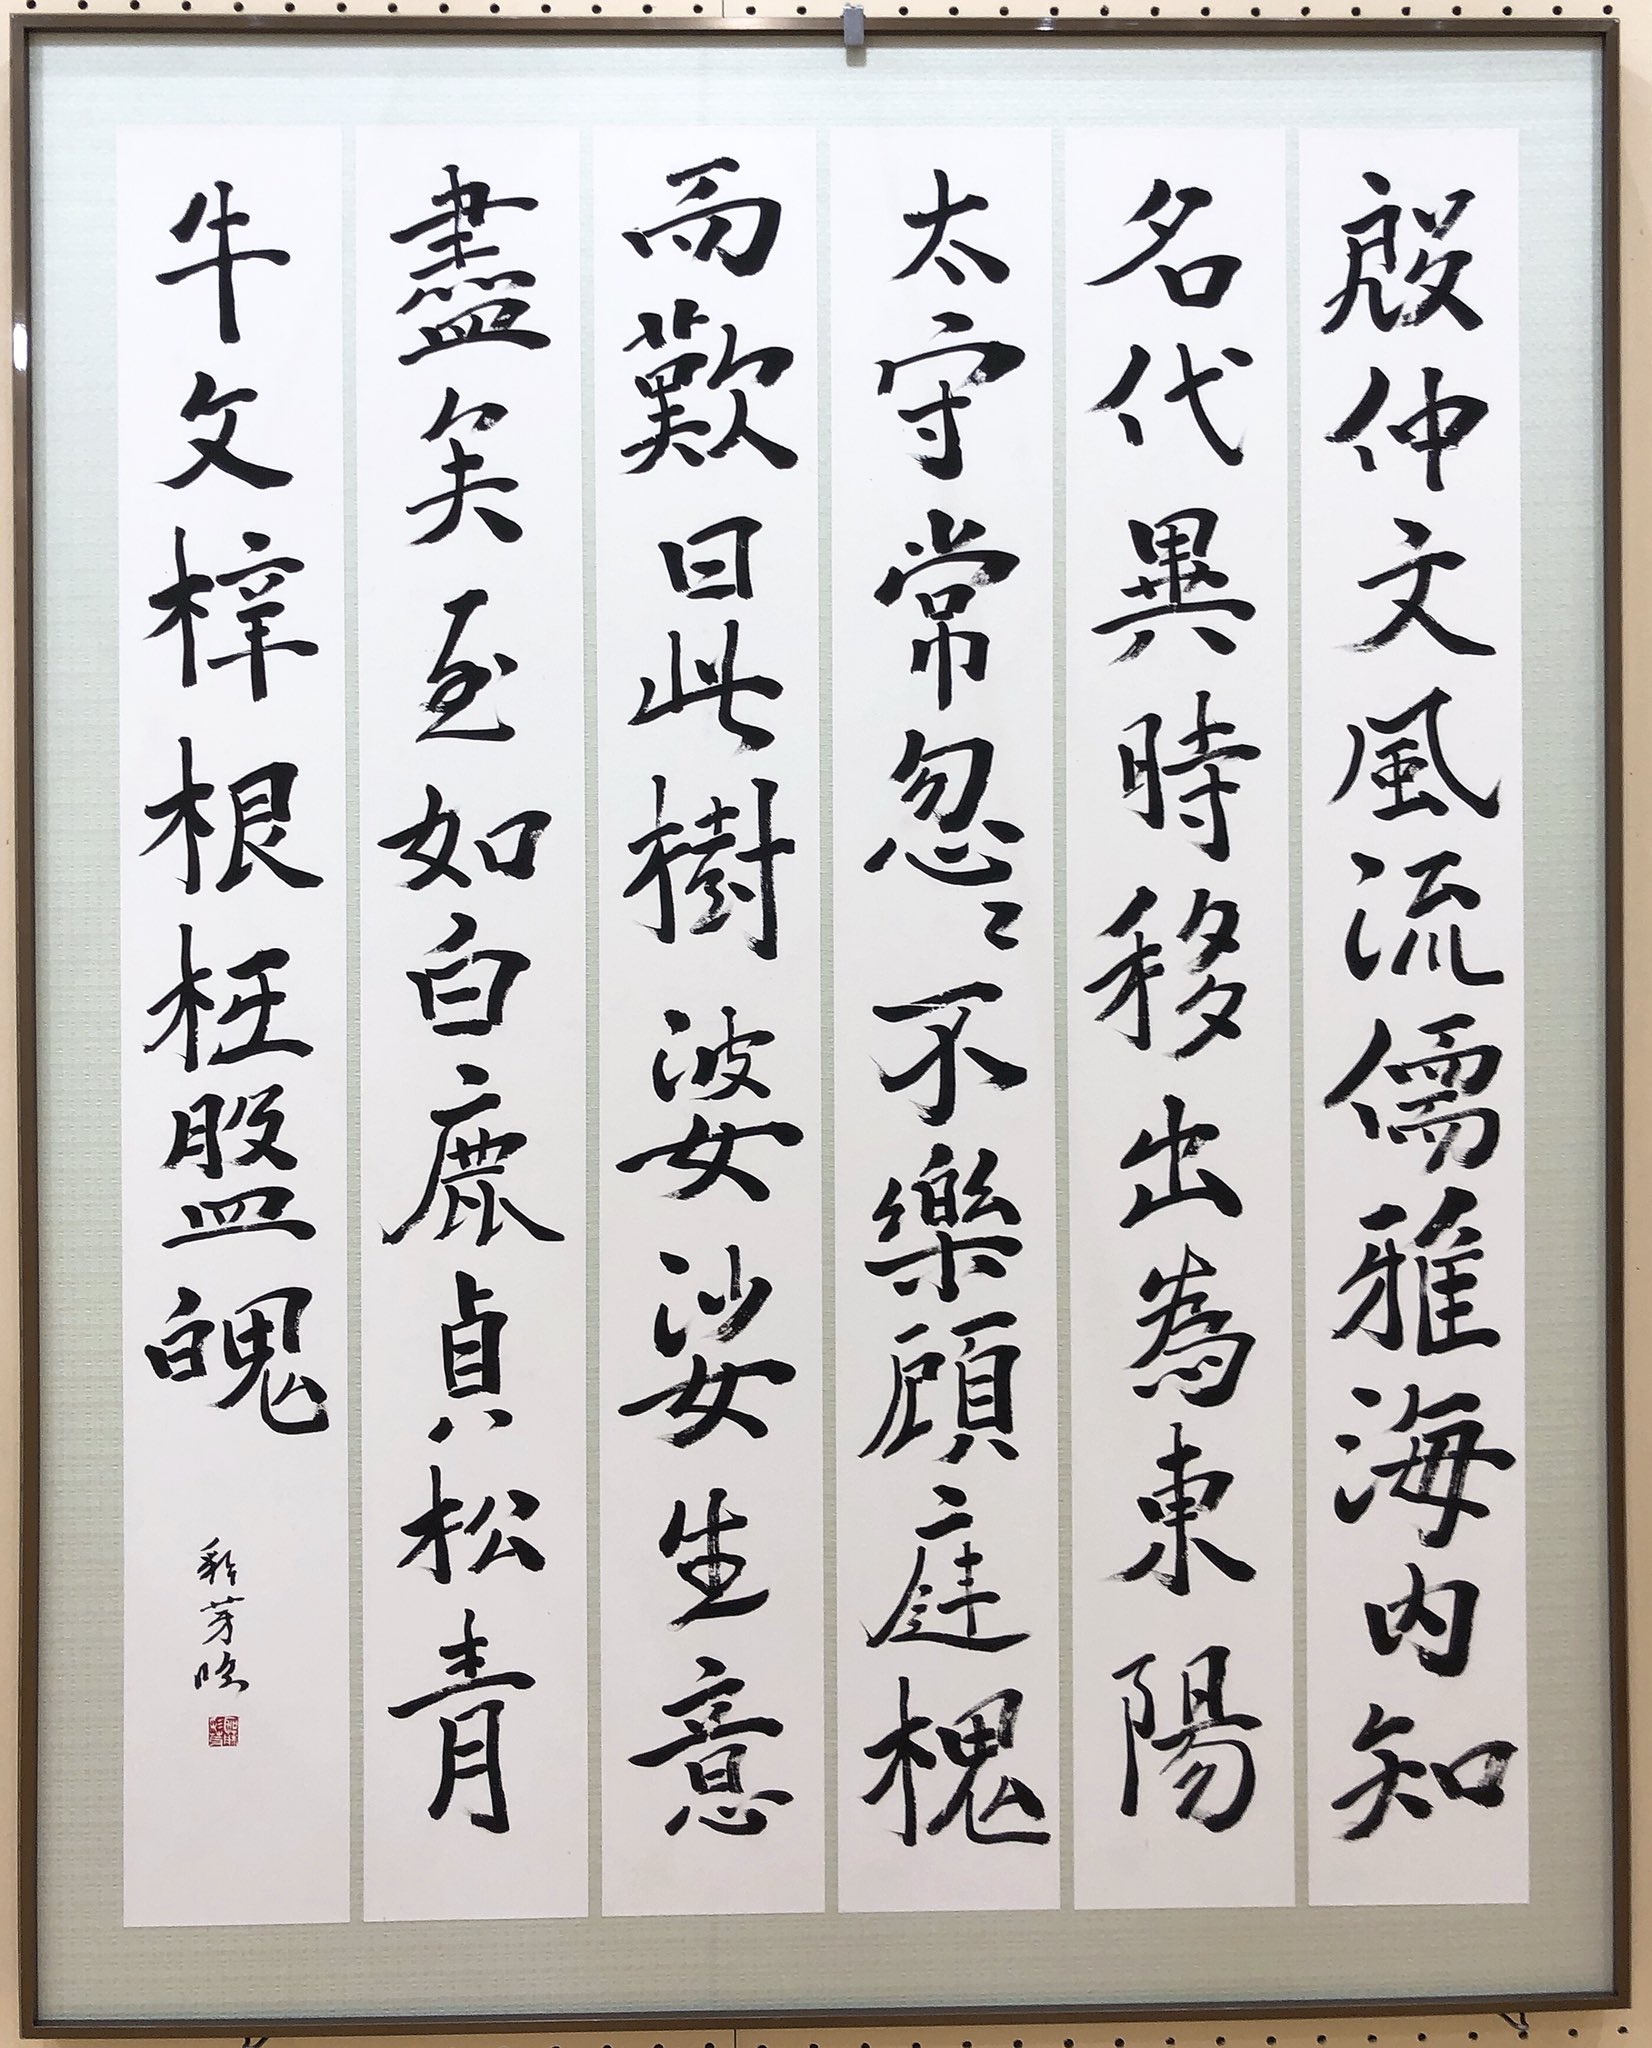 殷仲文風流儒雅海内知
名代異時移出為東陽
太守常忽〻不樂顧庭槐
而歎曰此樹婆娑生意
盡矣至如白鹿貞松青
牛文梓根柢盤魄
芳臨